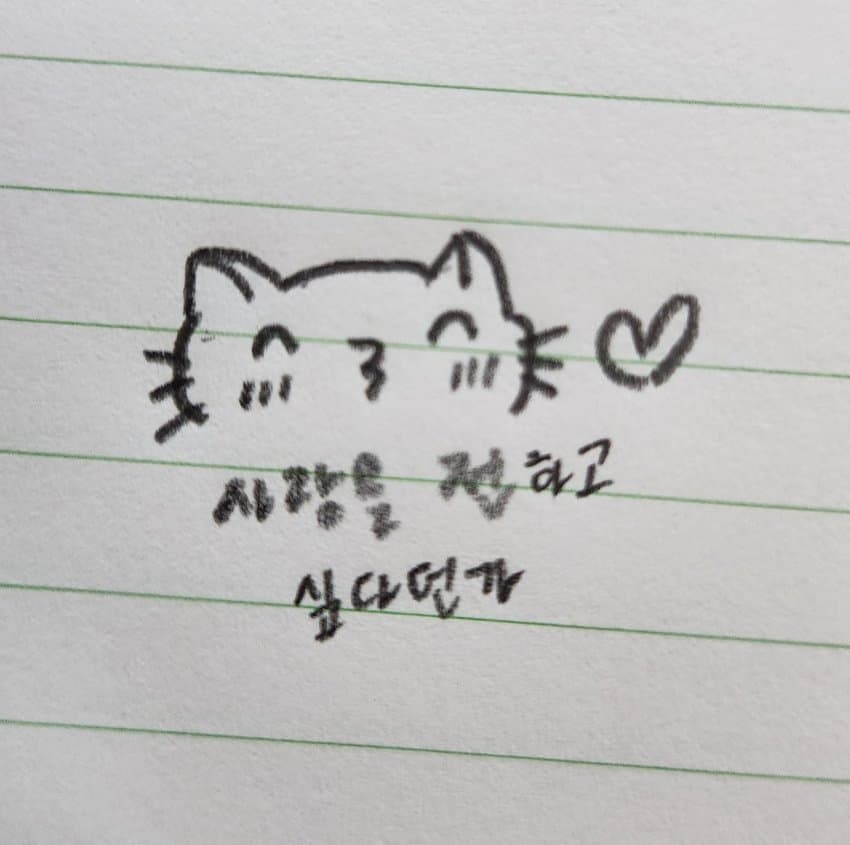 사랑을 전하고
싶다던가